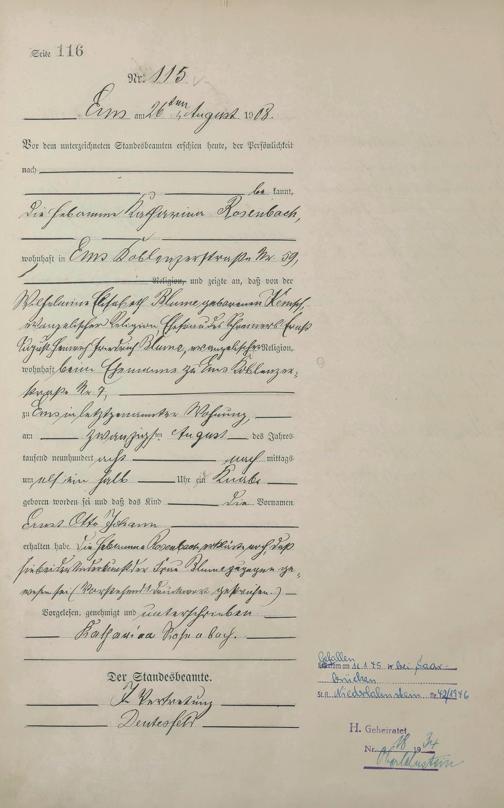 Seite 116
Nr. 115
Ems am 26ten August 1908.
Vor dem unterzeichneten Standesbeamten erschien heute, der Persönlichkeit
nach
be kannt,
die Hebamme Katharina Rosenbach,
wohnhaft in Ems Koblenzerstraße Nr 59,
Religion, und zeigte an, daß von der
Wilhelmine Elisabeth Blume geborenen
evangelischer Religion Ehefrau des Schreiners
August Heinrich Friedrich Blume, evangelischer Religion,
wohnhaft beim Ehemanne zu Ems Koblenzer-
straße Nr 7,
zu Ems in letztgenannter Wohnung,
am zwanzigsten August des Jahres
tausend neunhundert acht nach mittags
um elf ein halb Uhr ein Knabe
geboren worden sei und daß das Kind die Vornamen
Ernst Otto Johann
erhalten habe. Die Hebamme Rosenbach erklärte noch, daß
sie bei der Niederkunft der Frau Blume zugegen ge-
wesen sei (Vorstehend 1 Druckwort gestrichen.)
Vorgelesen, genehmigt und unterschrieben
Katharina Rosenbach.
Der Standesbeamte.
In Vertretung
gefallen
am 11.1.45 bei Saar-
brücken
St.A. Niederlahnstein nr 42/1946
H. Geheiratet
Nr. 18 1934
Oberlahnstein